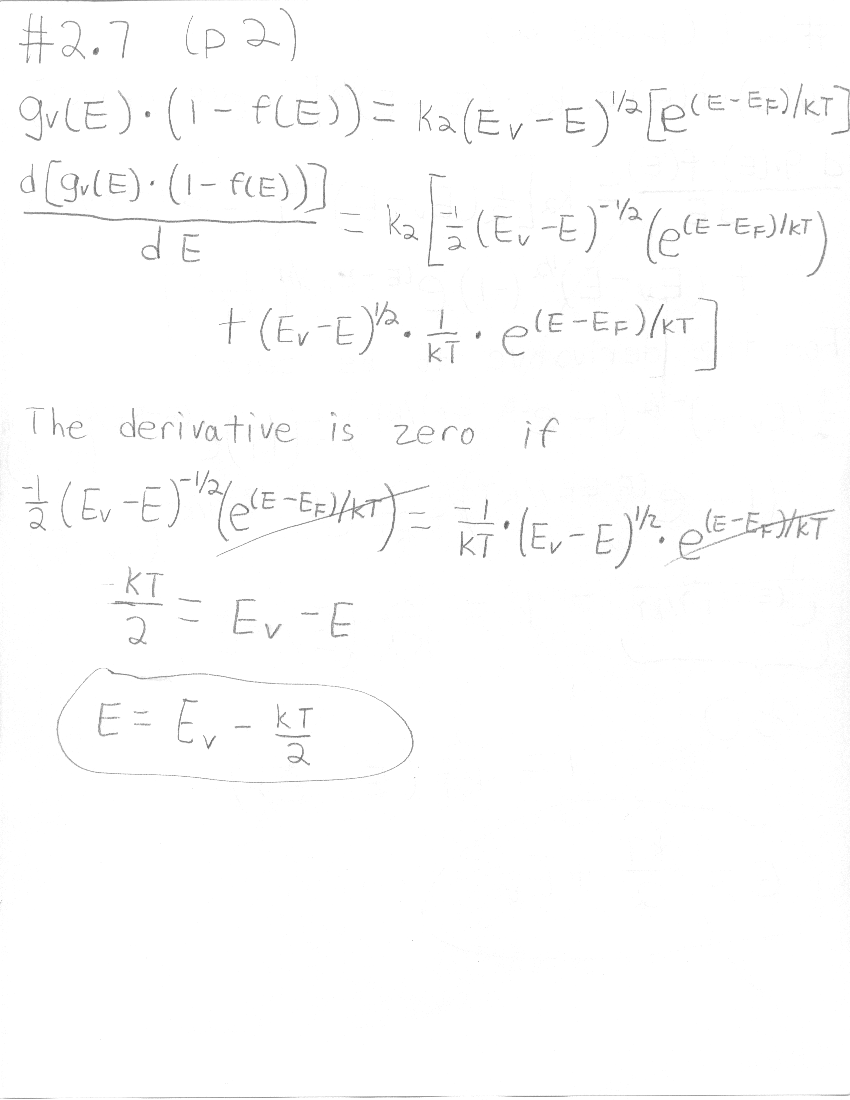 #2.7 (p2)
gv(E)·(1-f(E)) = K2(Ev-E)^1/2[e^(E-EF)/kT]
d[gv(E)·(1-f(E))]/dE = k2[-1/2(Ev-E)^-1/2(e^(E-EF)/kT)
+(Ev-E)^1/2·1/kT·e^(E-EF)/kT]
The derivative is zero if
-1/2(Ev-E)^-1/2(e^(E-EF)/kT) = -1/kT·(Ev-E)^1/2·e^(E-EF)/kT
kT/2 = Ev-E
E = Ev - kT/2